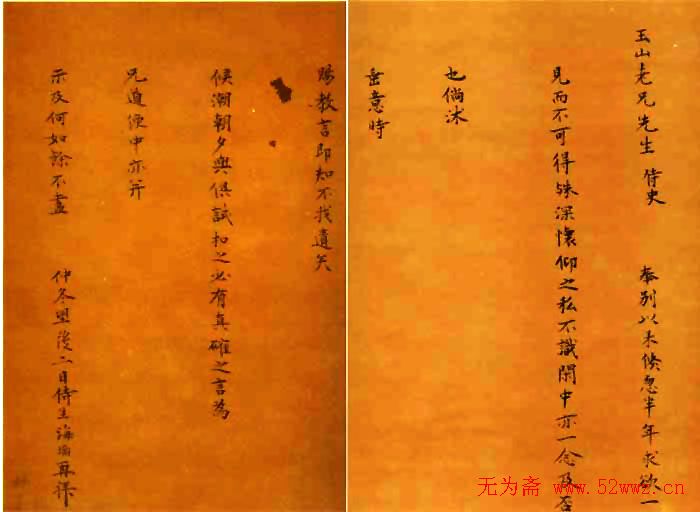 玉山老兄先生 侍史 奉别以来倏忽半年求欲一
見而不可得殊深懷仰之私不識閑中亦一念及否
也倘沐
垂意時
賜教言即知不我遺矣
候潮朝夕與俱試扣之必有真確之言為
兄道便中亦并
示及何如餘不盡 仲冬望後二日侍生海瑞再拜
无为斋 www.52wwz.cn